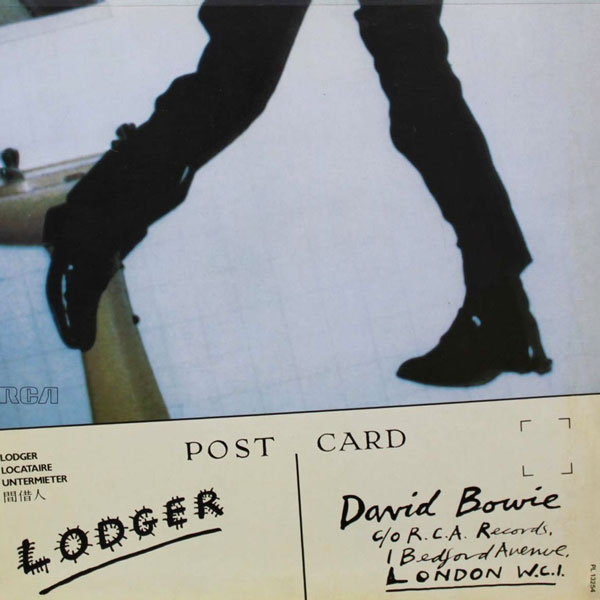 RCA
POST CARD
LODGER
LOCATAIRE
UNTERMIETER
間借人
LODGER
David Bowie
c/o R.C.A. Records,
1 Bedford Avenue,
LONDON W.C.1.
PL 13254